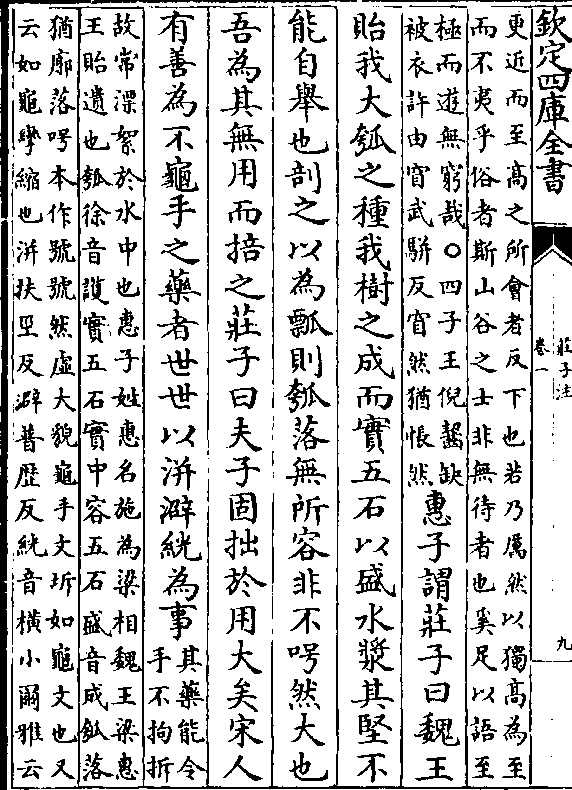 欽定四庫全書
莊子注
卷一
九
更近而至高之所會者反下也若乃厲然以獨高為至
而不夷乎俗者斯山谷之士非無待者也奚足以語至
極而遊無窮哉○四子王倪齧缺
被衣許由窅武駢反窅然猶悵然
惠子謂莊子曰魏王
貽我大瓠之種我樹之成而實五石以盛水漿其堅不
能自舉也剖之以為瓢則瓠落無所容非不呺然大也
吾為其無用而掊之莊子曰夫子固拙於用大矣宋人
有善為不龜手之藥者世世以洴澼絖為事
其藥能令
手不拘折
故常漂絮於水中也惠子姓惠名施為梁相魏王梁惠
王貽遺也瓠徐音護實五石實中容五石盛音成瓠落
猶廓落呺本作號號然虛大貌龜手文坼如龜文也又
云如龜攣縮也洴扶坙反澼普歷反絖音橫小爾雅云